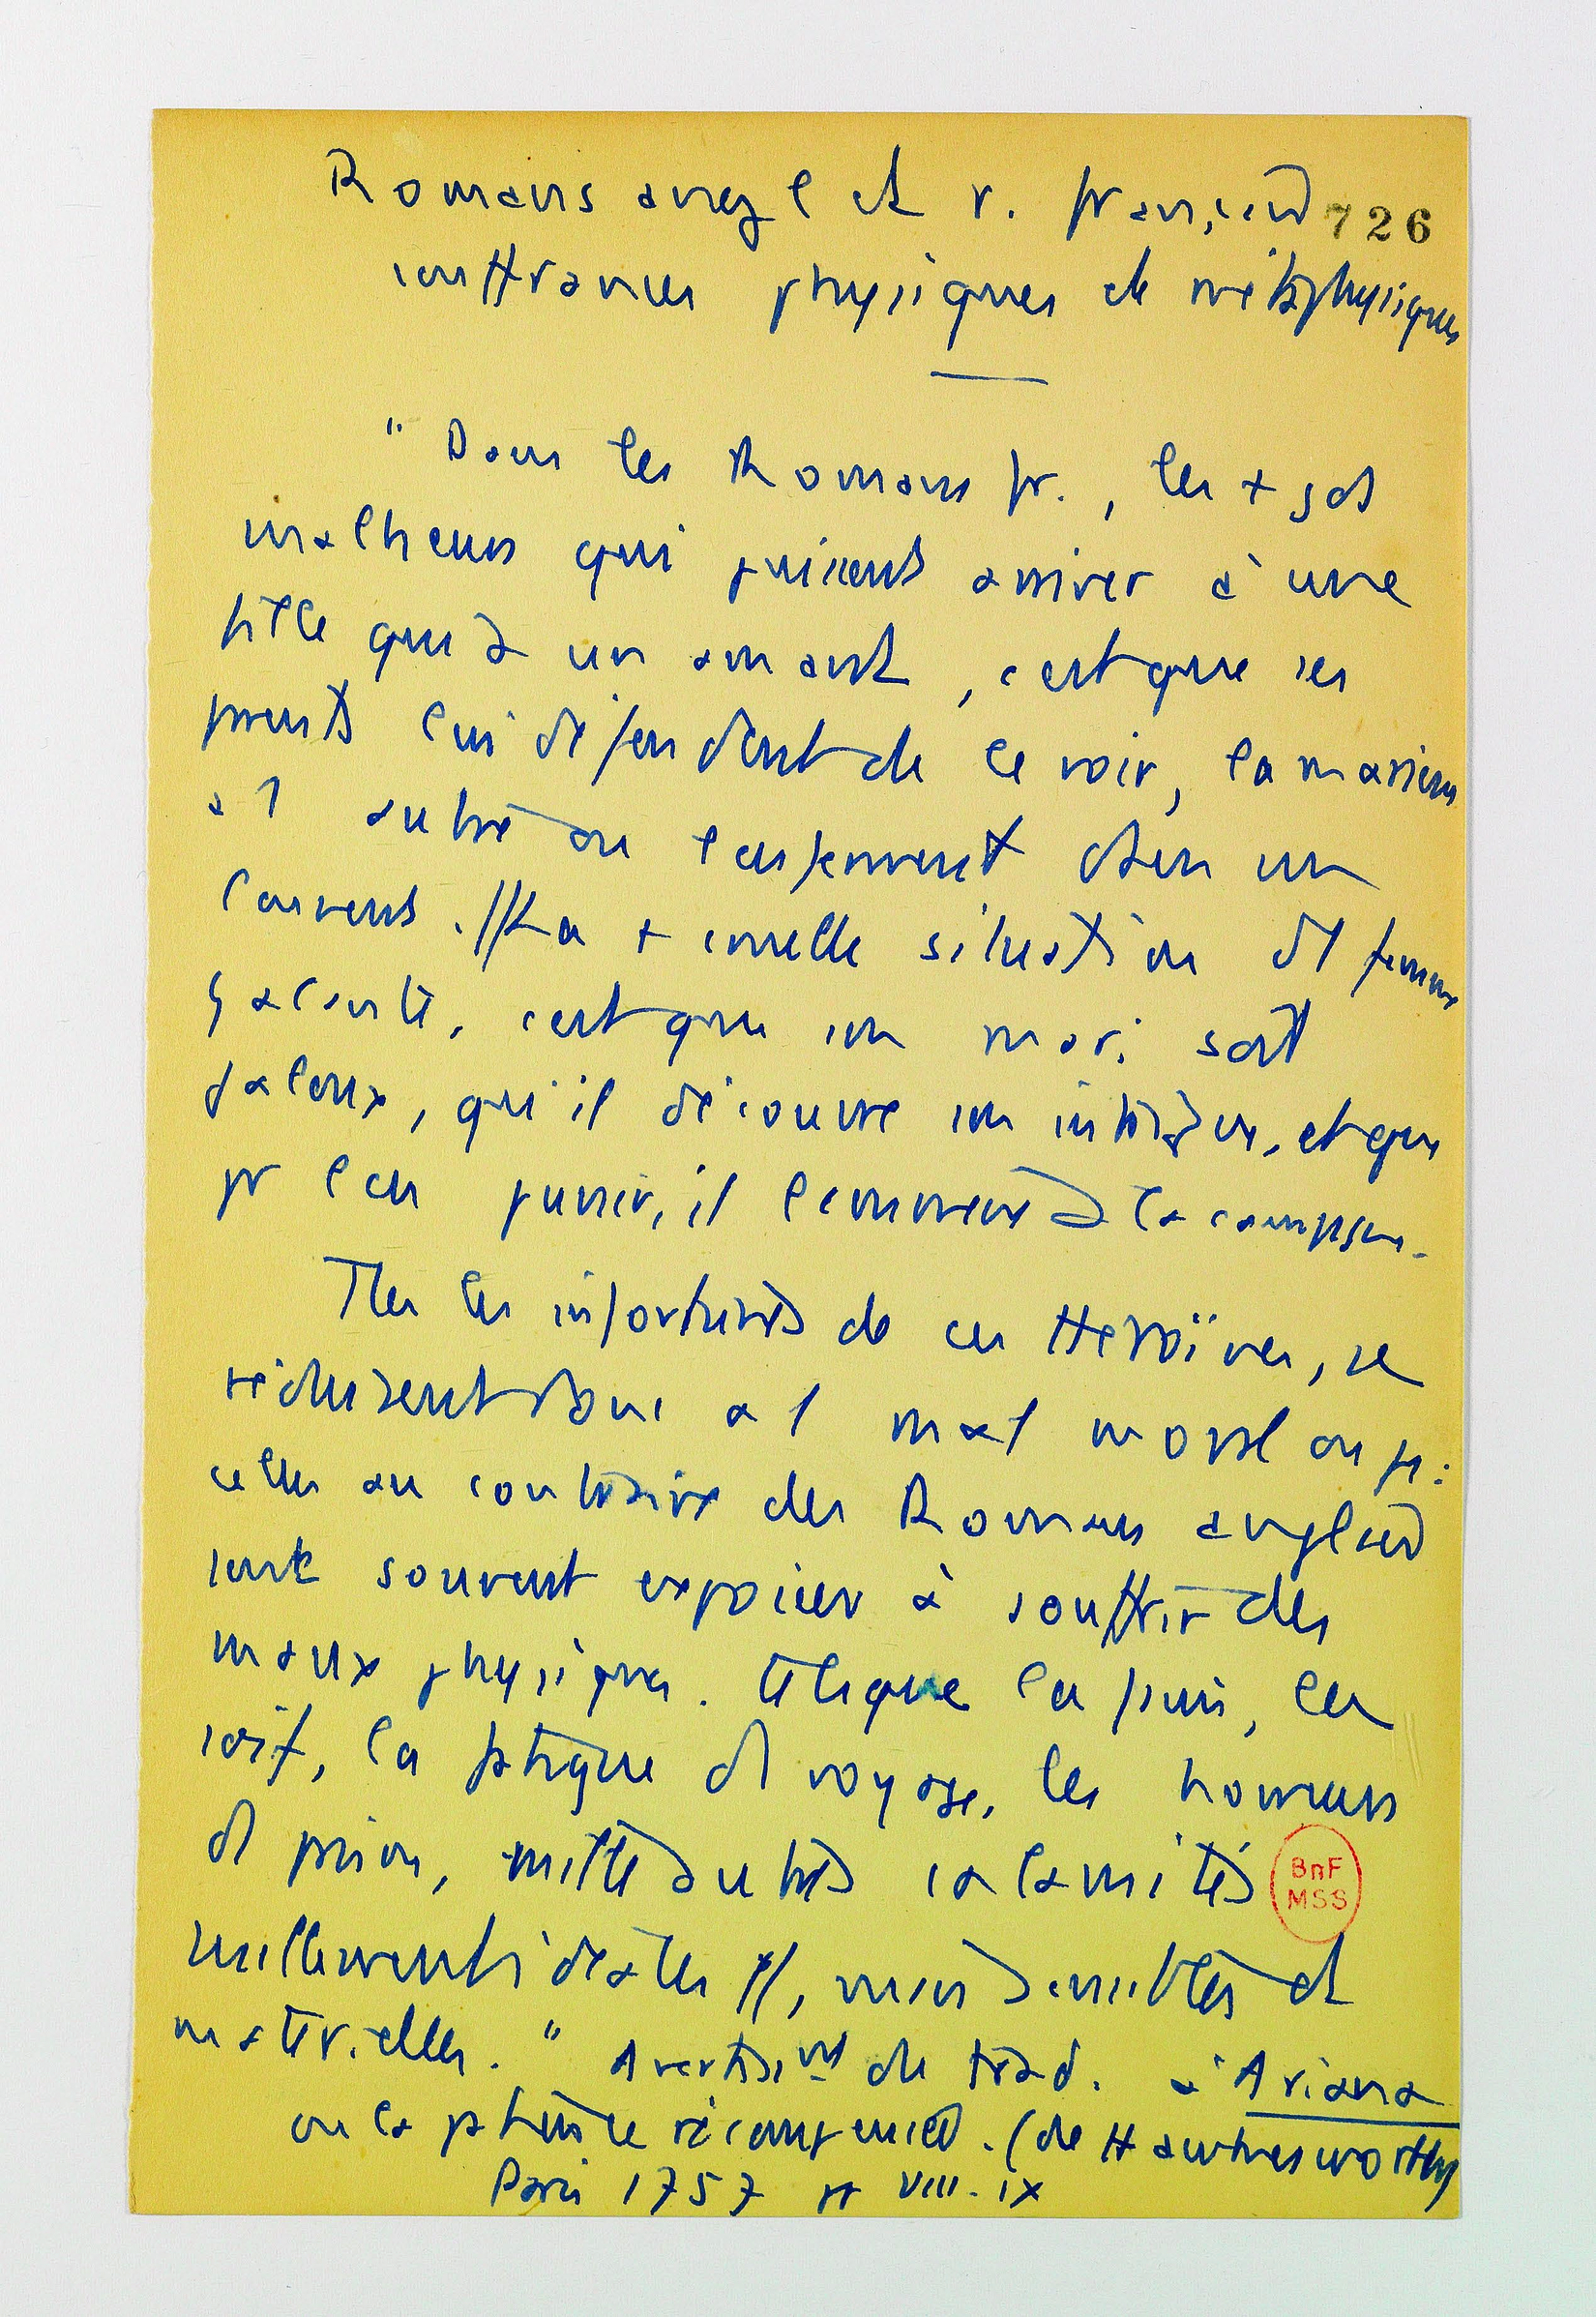 Romans angl et r. français 726
souffrances physiques et métaphysiques
" Dans les Romans fr., les + gds
malheurs qui puissent arriver à une
fille qui a un amant, c'est que ses
parents lui défendent de le voir, la marient
à 1 autre ou l'enferment dans un
Couvent. // La + cruelle situation d'1 femme
galante, c'est que son mari soit
jaloux, qu'il découvre son intrigue, et que
pr l'en punir, il l'emmène à la campagne.
Ttes les infortunes de ces Héroïnes, se
réduisent donc à 1 mal moral ou :
celles au contraire des Romans anglais
sont souvent exposées à souffrir des
maux physiques. telsque la faim, la
soif, la fatigue d'1 voyage, les horreurs
d'1 prison, mille autres calamités
nullement idéales //, mais sensibles et
matérielles. " Avertissmt de trad. à Ariana
ou la patience récompensée. (de Hawthesworthy
Paris 1757 pp VIII-IX
BnF
MSS